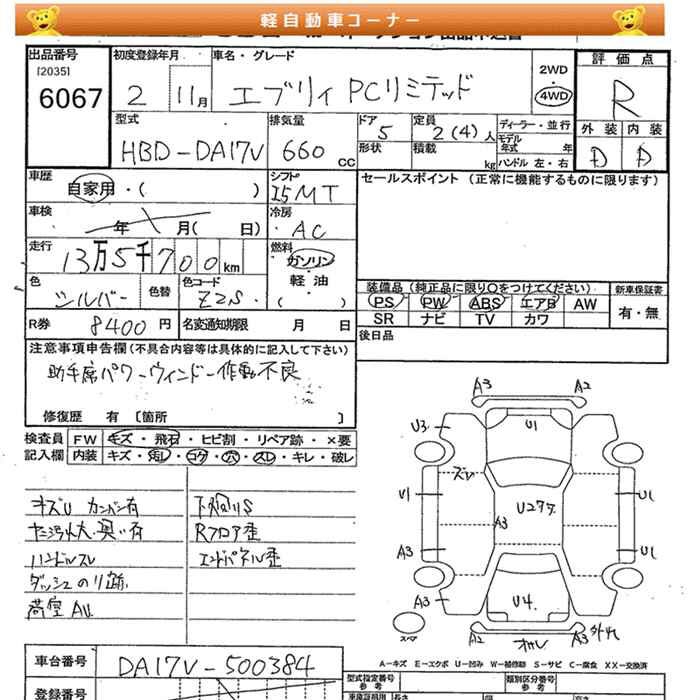 軽自動車コーナー
出品番号
[2035]
6067
初度登録年月
2 11月
車名・グレード
エブリィ PCリミテッド
2WD
4WD
評価点
R
外装 内装
D D
型式
HBD-DA17V
排気量
660 cc
ドア
5
形状
定員
2(4)人
積載
kg
ディーラー・並行
モデル
年式 年
ハンドル 左・右
車歴
自家用・( )
シフト
I5MT
セールスポイント (正常に機能するものに限ります)
車検
年 月( 日)
冷房
AC
走行
13万5千700km
燃料
ガソリン
・
軽・油
( )
色
シルバー
色替
色コード
Z2S
装備品(純正品に限り○をつけてください)
PS PW ABS エアB AW
SR ナビ TV カワ
新車保証書
有・無
R券 8400円
名変通知期限 月 日
後日品
注意事項申告欄(不具合内容等は具体的に記入して下さい)
助手席パワーウィンドー作動不良
修復歴 有 〔箇所 〕
検査員
記入欄
FW キズ・飛石・ヒビ割・リペア跡・×要
内装 キズ・汚レ・コゲ・穴・スレ・キレ・破レ
キズU カンバン有
ハンドルスレ
ダッシュのり跡
荷室AU
下廻りS
Rフロア歪
エンドパネル歪
A3 A2
U3 U1
ズレ
U1 U2テテ U1
A3
A3 U1
A3 U4
A2 オカレ A3 外れ
スペア
A-キズ E-エクボ U-凹み W-補修跡 S-サビ C-腐食 XX-交換済
車台番号
DA17V-500384
型式指定番号
参考
類別区分番号
参考
登録番号
長さ
幅
高さ